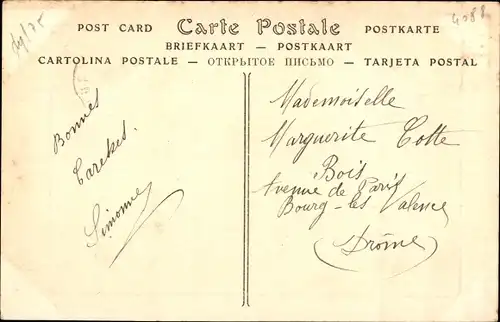 POST CARD Carte Postale POSTKARTE
BRIEFKAART — POSTKAART
CARTOLINA POSTALE — ОТКРЫТОЕ ПИСЬМО — TARJETA POSTAL
4088
Bonnes
Simonne
Mademoiselle
Marguerite Cotte
Bois
Avenue de Paris
Bourg-les Valence
(Drôme)